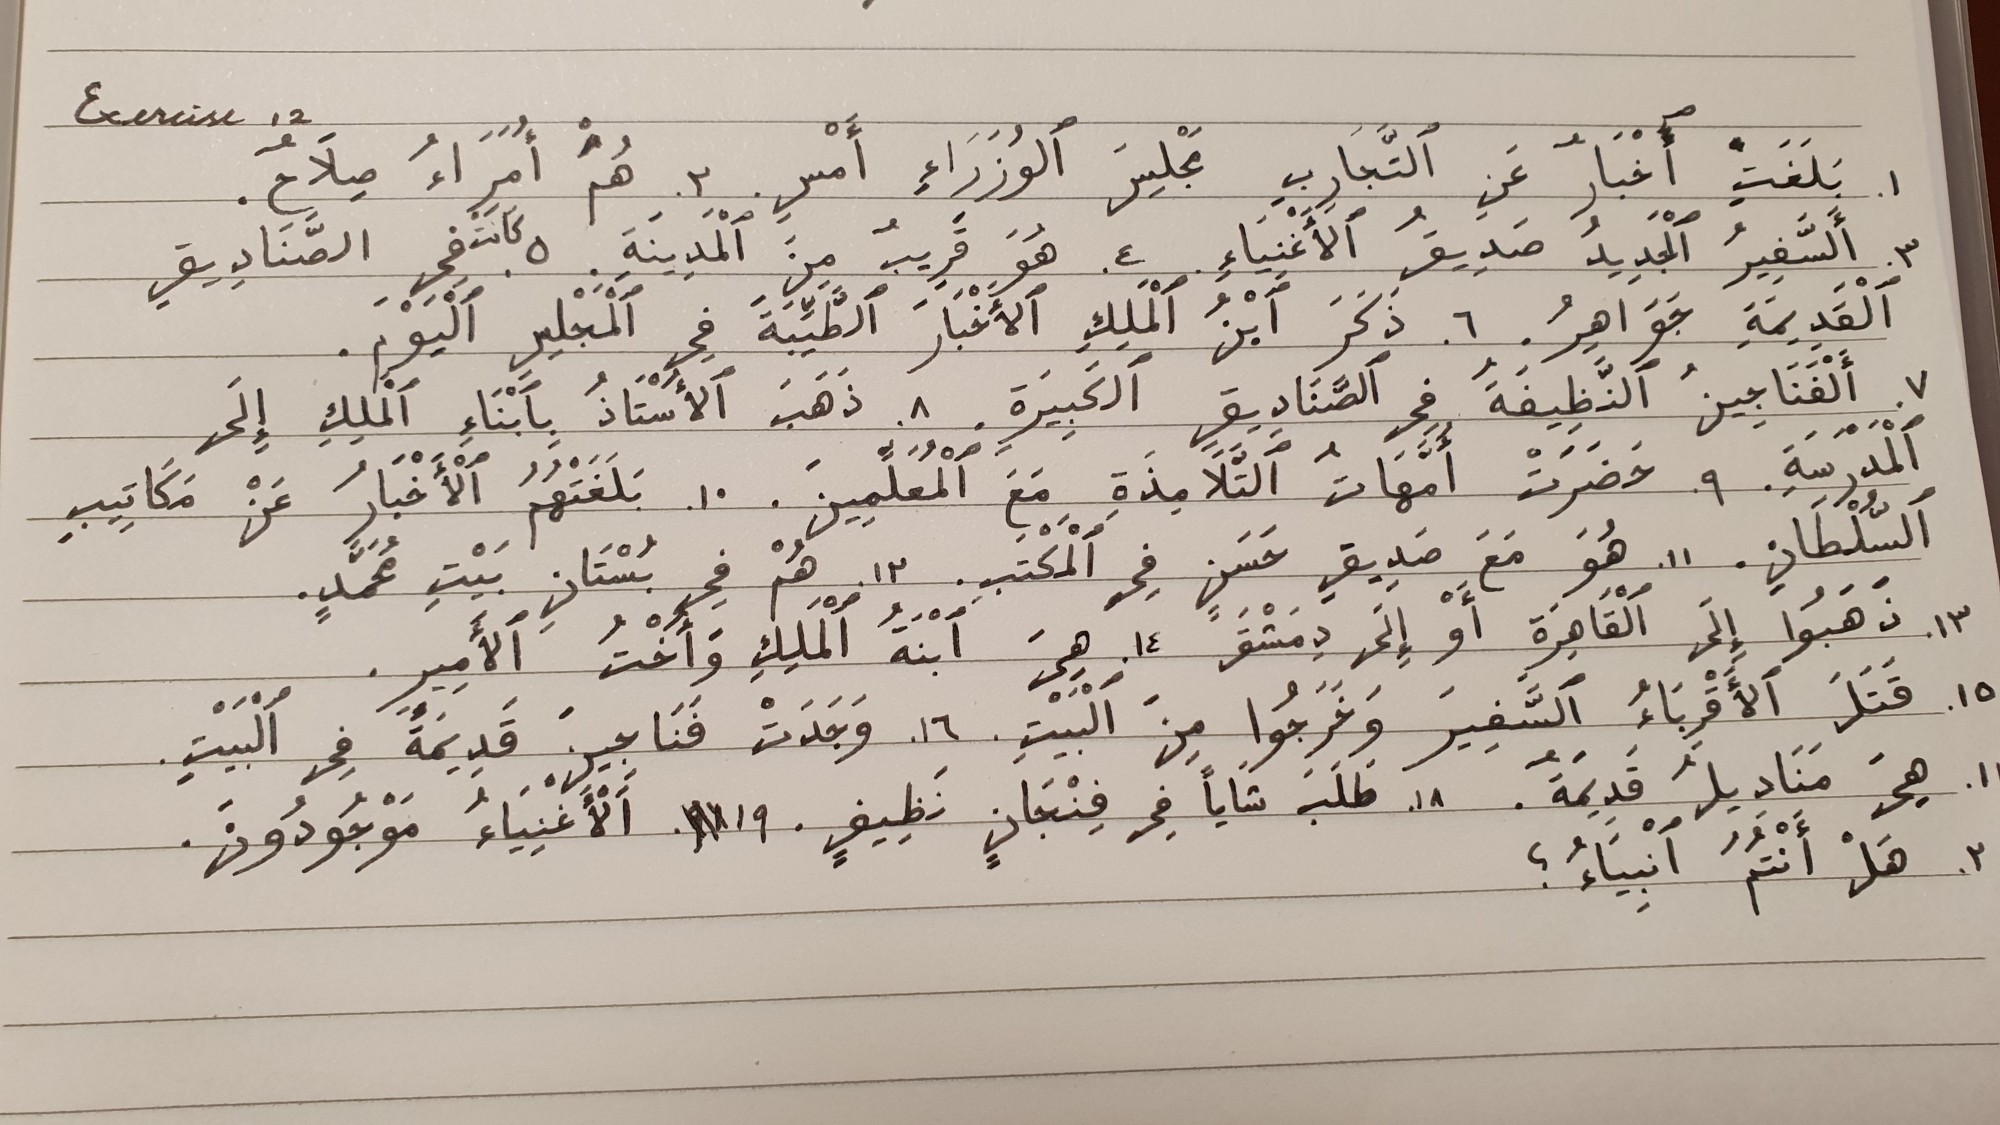 Exercise 12
١. بَلَغَتْ أَخْبَارٌ عَنِ ٱلتَّجَارِبِ مَجْلِسَ ٱلوُزَرَاءِ أَمْسِ. ٢. هُمْ أُمَرَاءُ صِلَاحٌ.
٣. أَلسَّفِيرُ ٱلْجَدِيدُ صَدِيقُ ٱلأَغْنِيَاءِ. ٤. هُوَ قَرِيبٌ مِنَ ٱلْمَدِينَةِ. ٥. كَانَتْ فِي الصَّنَادِيقِ
ٱلْقَدِيمَةِ جَوَاهِرُ. ٦. ذَكَرَ ٱبْنُ ٱلْمَلِكِ ٱلأَخْبَارَ ٱلطَّيِّبَةَ فِي ٱلْمَجْلِسِ ٱلْيَوْمَ.
٧. أَلْفَنَاجِينُ ٱلنَّظِيفَةُ فِي ٱلصَّنَادِيقِ ٱلكَبِيرَةِ. ٨. ذَهَبَ ٱلأُسْتَاذُ بِأَبْنَاءِ ٱلْمَلِكِ إِلَى
ٱلْمَدْرَسَةِ. ٩. حَضَرَتْ أُمَّهَاتُ ٱلتَّلَامِذَةِ مَعَ ٱلْمُعَلِّمِينَ. ١٠. بَلَغَتْهُمُ ٱلْأَخْبَارُ عَنْ مَكَاتِيبِ
ٱلسُّلْطَانِ. ١١. هُوَ مَعَ صَدِيقِ حَسَنٍ فِي ٱلْمَكْتَبِ. ١٢. هُمْ فِي بُسْتَانِ بَيْتِ مُحَمَّدٍ.
١٣. ذَهَبُوا إِلَى ٱلْقَاهِرَةِ أَوْ إِلَى دِمَشْقَ ١٤. هِيَ ٱبْنَةُ ٱلْمَلِكِ وَأُخْتُ ٱلأَمِيرِ.
١٥. قَتَلَ ٱلأَقْرِبَاءُ ٱلسَّفِيرَ وَخَرَجُوا مِنَ ٱلْبَيْتِ. ١٦. وَجَدَتْ فَنَاجِينَ قَدِيمَةً فِي ٱلْبَيْتِ.
هِيَ مَنَادِيلُ قَدِيمَةٌ. ١٨. طَلَبَ شَاياً فِي فِنْجَانٍ نَظِيفٍ. ١٩. اَلْأَغْنِيَاءُ مَوْجُودُونَ.
هَلْ أَنْتُمْ أَنْبِيَاءُ؟